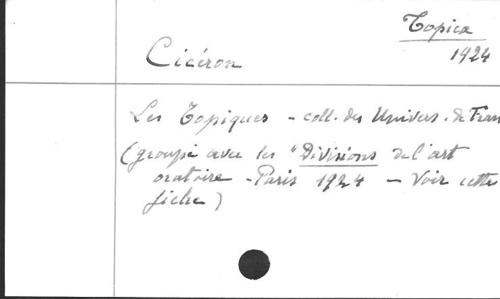 Topica
1924
Cicéron
Les Topiques - coll. des Univers. de Fran
(groupé avec les "Divisions de l'art
oratoire - Paris 1924 - Voir cette
fiche)